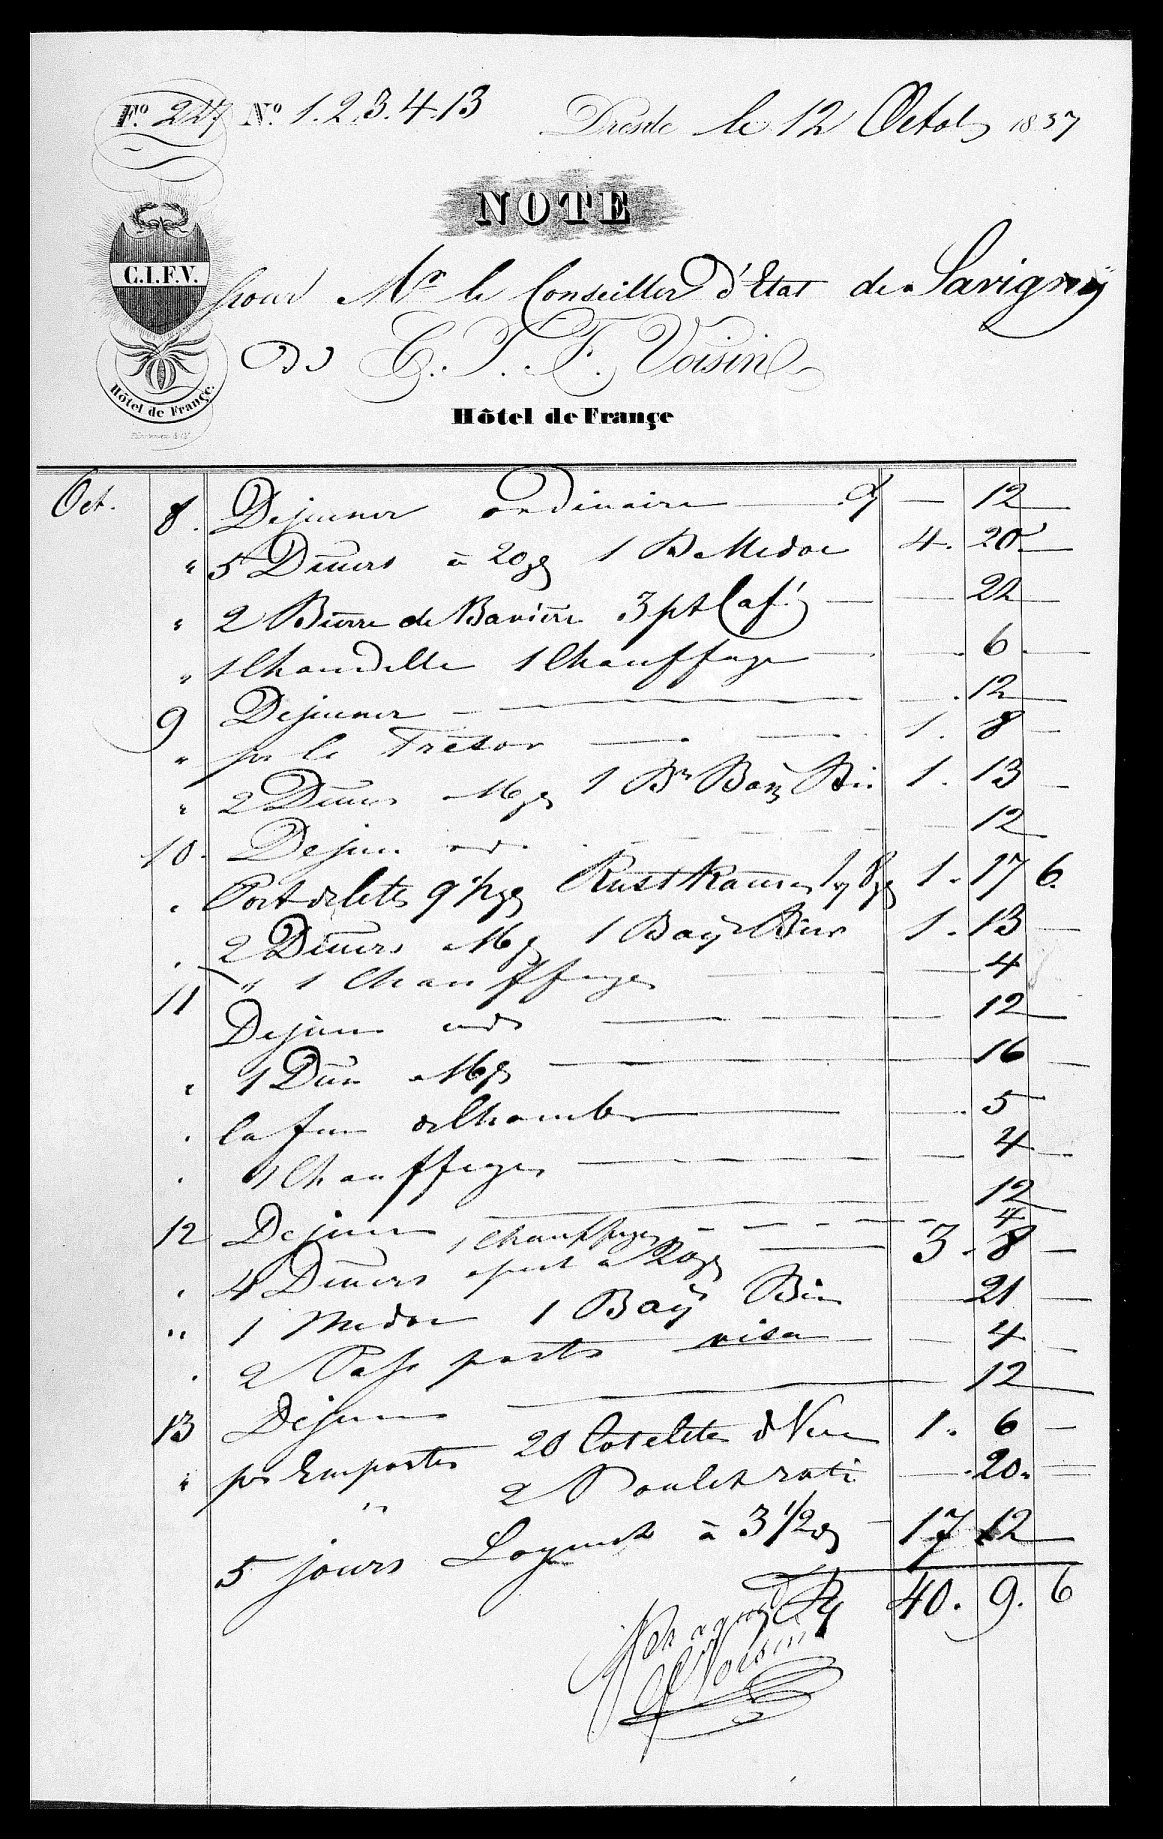 F.º 227 N.º 1.2.3.4.13
Dresde le 12 Octob 1837
NOTE
C.I.F.V.
pour Mr le Conseiller d'Etat de Savigny
C. I. F. Voisin
Hôtel de Françe.
Hôtel de Françe
Oct. 8. Dejeuner ordinaire — 12 —
" 5 Diners a 20 1 B Medoc 4. 20 —
" 2 Bierre de Baviere 3 pt Café — 22 —
" 1 Chandelle 1 Chauffage — 6 —
9 Dejeuner — 12 —
" pr le Tresor — 1. 8 —
" 2 Diners 16 1 Br Bay Bi. 1. 13 —
10. Dejeun ord. — 12 —
" Port de lets 9 1/2 Rustkamer 8 1. 17 6.
" 2 Diners 16 1 Bay Bier 1. 13 —
" 1 Chauffage — 4
11 Dejeun ord — 12 —
" 1 Din 16 — 16 —
" la fem de Chamber — 5 —
" 1 Chauffage — 4 —
— 12 —
12 Dejeun 1 Chauffage — 4
" 4 Diners apart a 20 — 3. 8 —
" 1 Medoc 1 Bay Bier — 21 —
" 2 Passports visa — 4 —
— 12 —
13 Dejeun
" pr Emporter 20 Cotelettes d Veau 1. 6 —
" 2 Poulets roti — 20. —
5 jours Logement à 3 1/2 — 17 12 —
40. 9. 6
Voisin